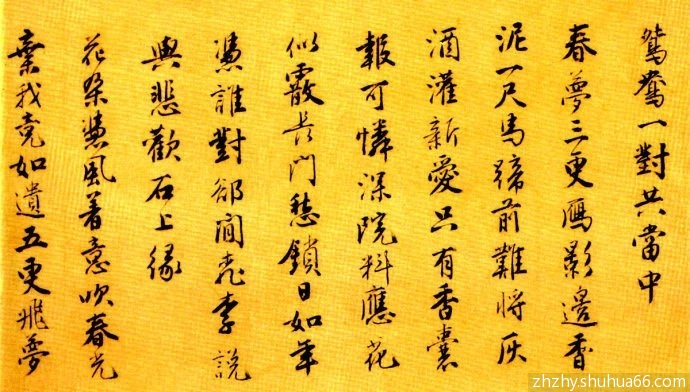 鴛鴦一對共當中
春夢三更鴈影邊香
泥一尺馬蹄前難將灰
酒灌新愛只有香囊
報可憐深院料應花
似霰長門愁鎖日如年
憑誰對卻閒桃李說
與悲歡石上緣
花朵憑風着意吹春光
棄我竟如遺五更飛夢
zhzhy.shuhua66.com